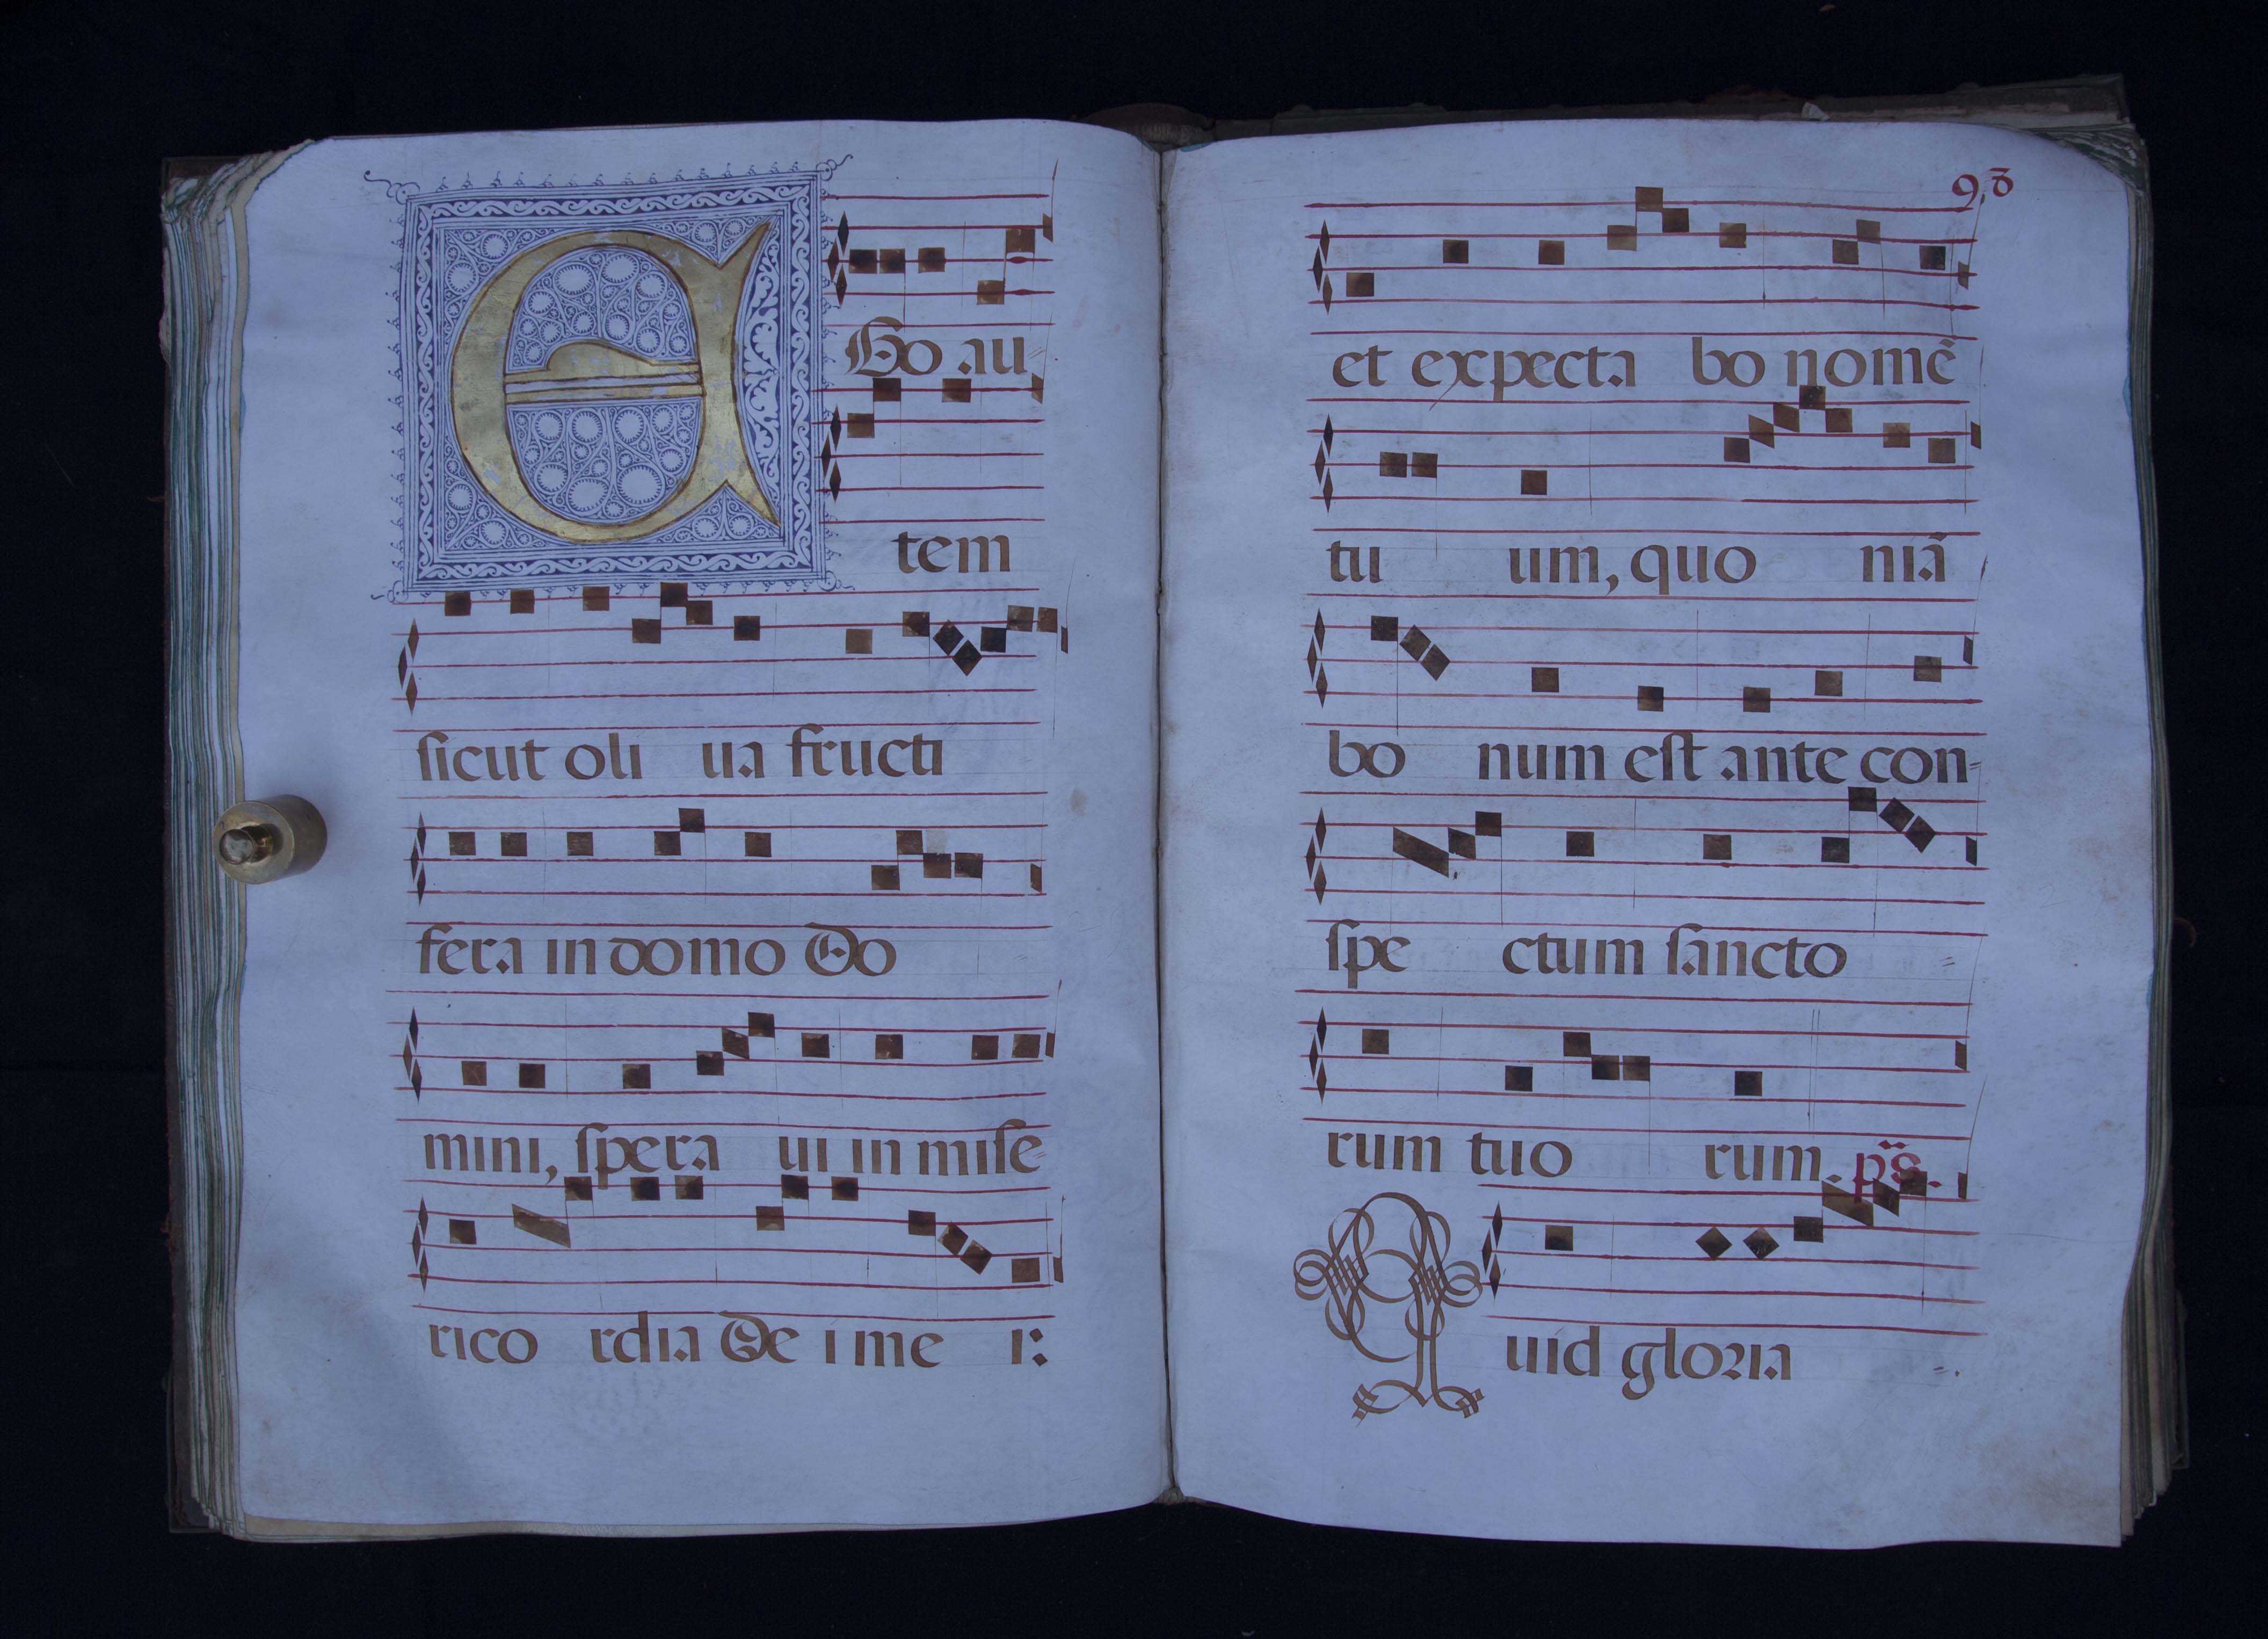 EGo au=
tem
ſicut oli ua fructi
fera in domo Do
mini, ſpera ui in miſe=
rico rdia De i me i:
et expecta bo nomē
tu um, quo niā
bo num eſt ante con=
ſpe ctum ſancto =
rum tuo rum. ps̈.
Quid gloria =.